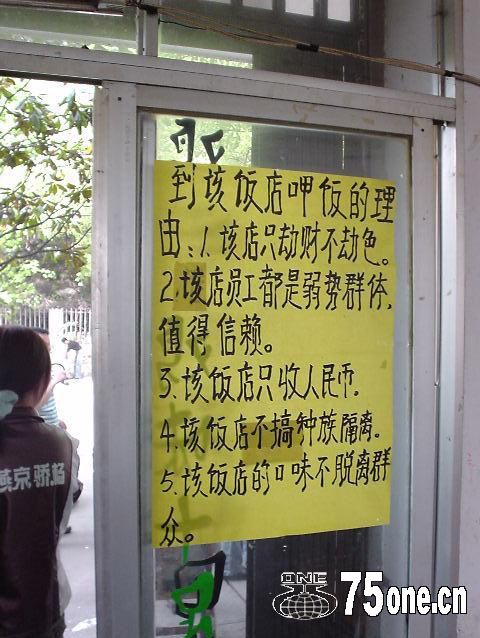 到该饭店呷饭的理
由：1.该店只劫财不劫色。
2.该店员工都是弱势群体、
值得信赖。
3.该饭店只收人民币.
4.该饭店不搞种族隔离。
5.该饭店的口味不脱离群
众。
燕京骄杨
ONE
75one.cn